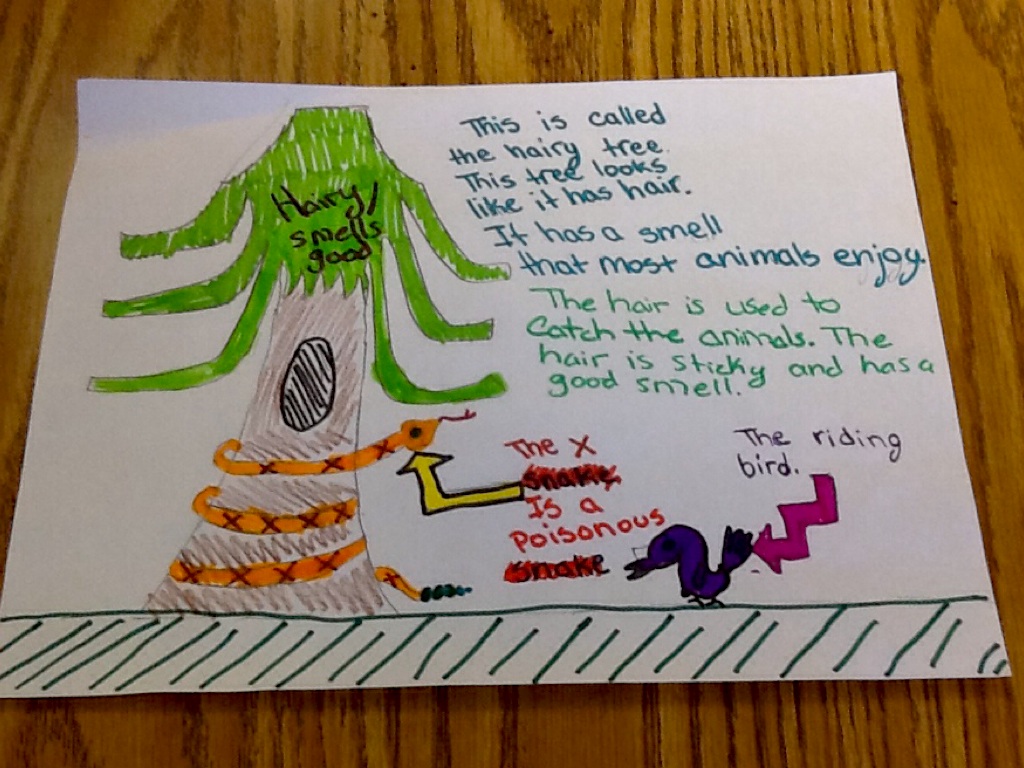 Hairy/
smells
good
This is called
the hairy tree.
This tree looks
like it has hair.
It has a smell
that most animals enjoy.
The hair is used to
Catch the animals. The
hair is sticky and has a
good smell.
The X
snake
Is a
poisonous
snake
The riding
bird.